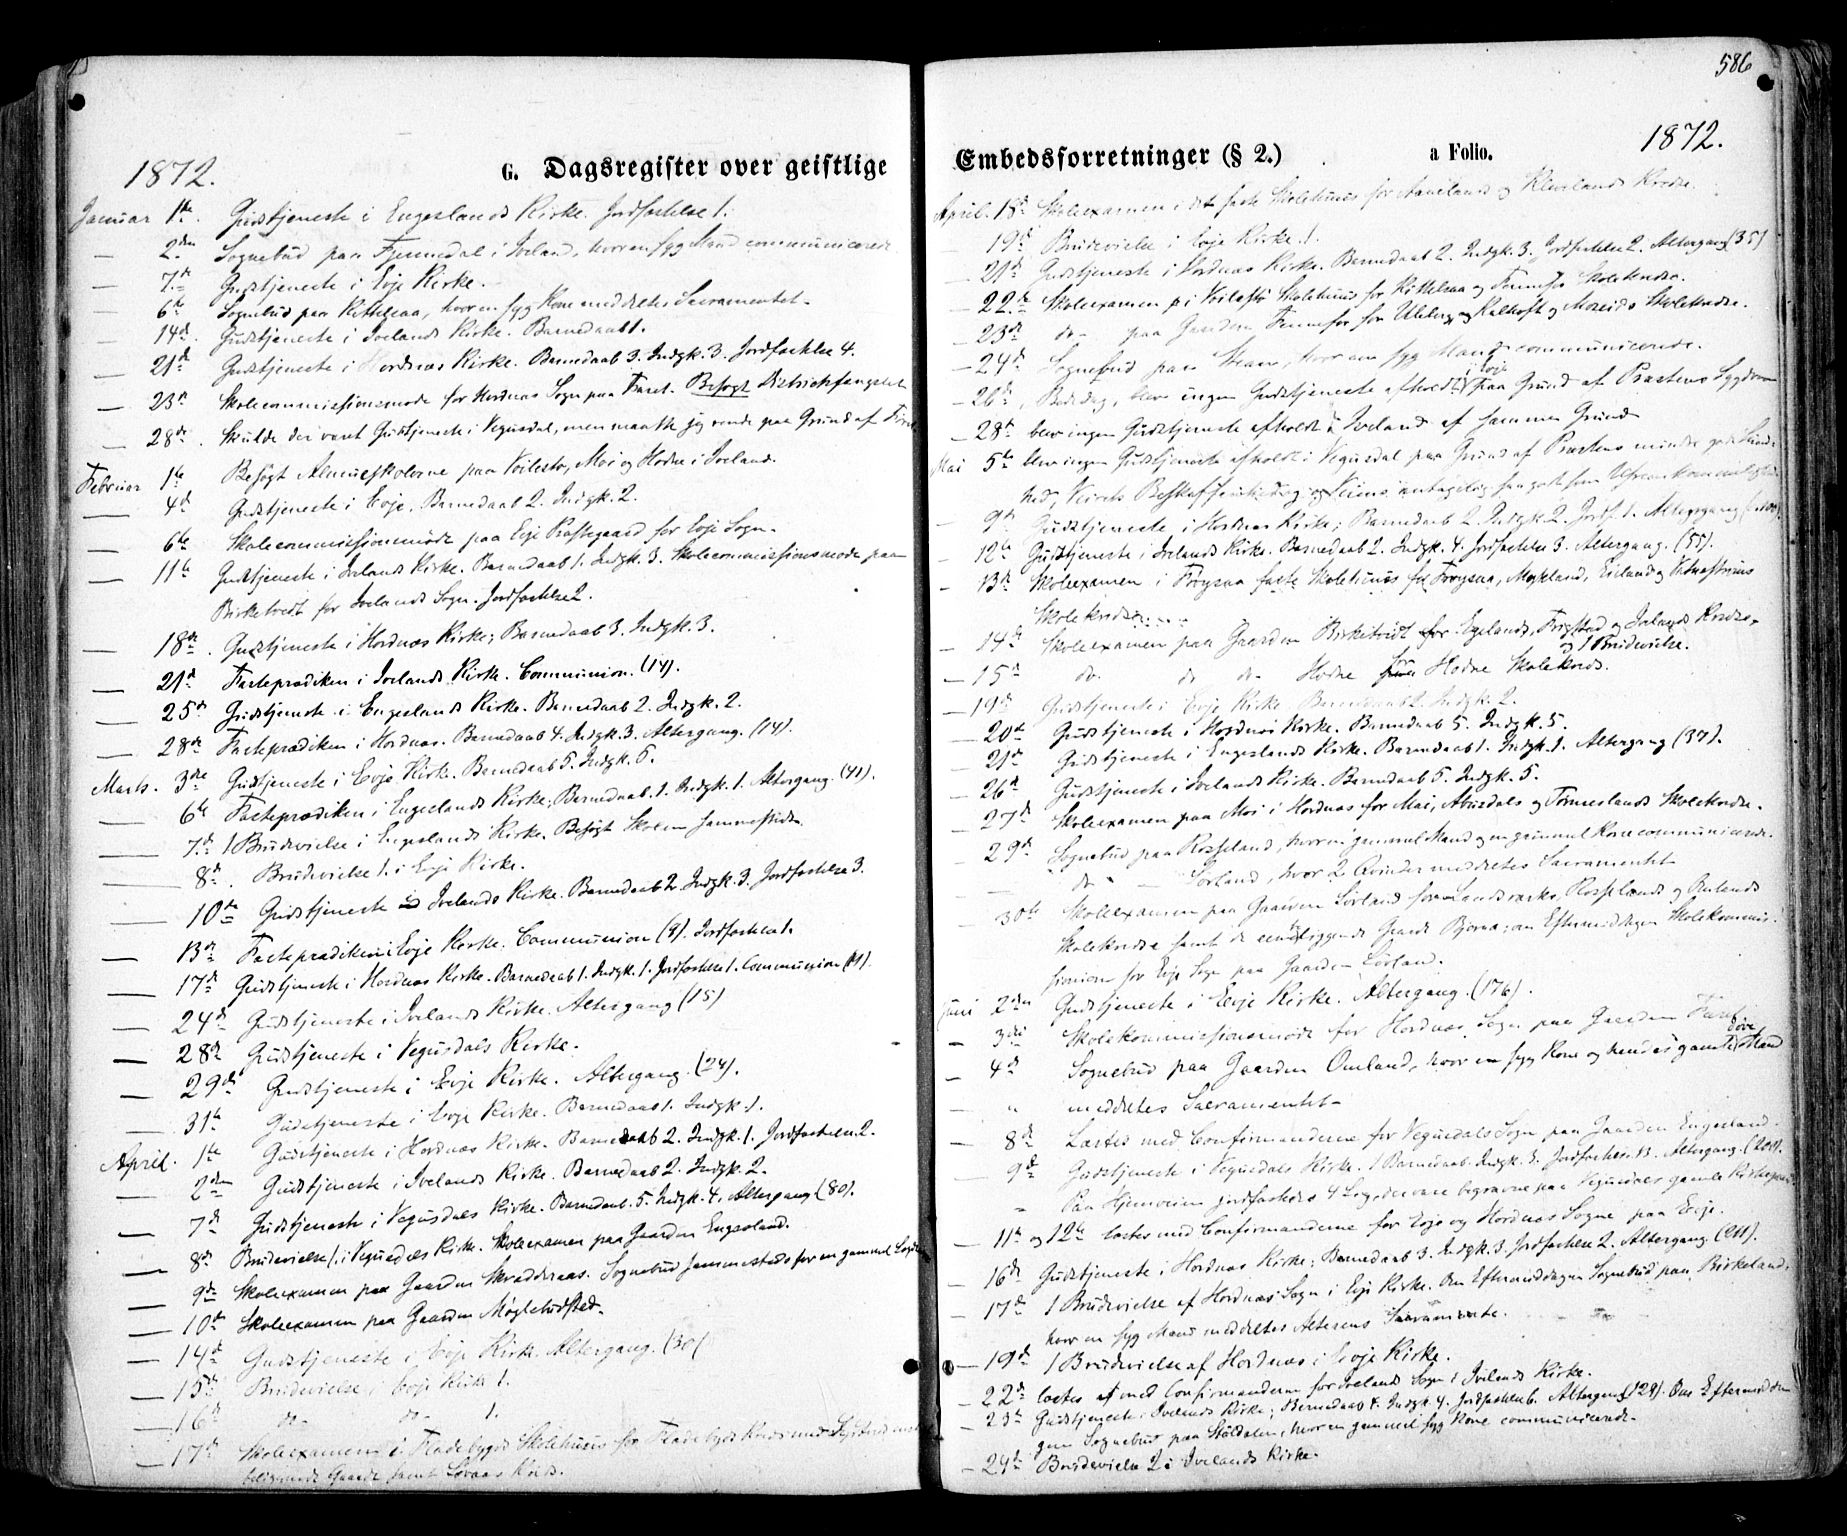 586
1872.
G. Dagsregister over geistlige
Januar 1ste. Gudstjeneste i Engeslands Kirke. Jordfæstelse 1.
— 2den Sognebud paa Fjermedal i Iveland, hvor en syg Mand communicerede
— 7de Gudstjeneste i Evje Kirke.
— 6te Sognebud paa Kittelsaa, hvor en syg Kone meddeltes Sacramentet.
— 14d. Gudstjeneste i Ivelands Kirke. Barnedaab 1.
— 21de Gudstjeneste i Hordnæs Kirke. Barnedaab 3. Indgk. 3. Jordfæstelse 4.
— 23de Skolecommissionsmøde for Hordnæs Sogn paa Faret. Besøgt Districtsfængslet
— 28de. Skulde der været Gudstjeneste i Vegusdal, men maatte jeg vende paa Grund af
Februar 1ste Besøgt Almueskolerne paa Voilestø, Moi og Hodne i Iveland.
— 4d Gudstjeneste i Evje. Barnedaab 2. Indgk. 2.
— 6te Skolecommissionsmøde paa Evje Præstegaard for Evje Sogn.
— 11te Gudstjeneste i Ivelands Kirke. Barnedaab 1. Indgk. 3. Skolecommissionsmøde paa
Birketvedt for Ivelands Sogn. Jordfæstelse 2.
— 18de. Gudstjeneste i Hordnæs Kirke; Barnedaab 3. Indgk. 3.
— 21de Fasteprædiken i Ivelands Kirke. Communion. (14).
— 25de Gudstjeneste i Engeslands Kirke. Barnedaab 2. Indgk. 2.
— 28de Fasteprædiken i Hordnæs. Barnedaab 4. Indgk. 3. Altergang. (14).
Marts. 3die Gudstjeneste i Evje Kirke. Barnedaab 5. Indgk. 5.
— 6te Fasteprædiken i Engeslands Kirke. Barnedaab. 1. Indgk. 1. Altergang. (41).
— 7de 1 Brudevielse i Engeslands Kirke. Besøgt Skolen sammesteds.
— 8de. Brudevielse 1. i Evje Kirke.
— 10de Gudstjeneste i Ivelands Kirke. Barnedaab 2. Indgk. 3. Jordfæstelse 3.
— 13de Fasteprædiken i Evje Kirke. Communion (9). Jordfæstelse 1.
— 17de Gudstjeneste i Hordnæs Kirke. Barnedaab 1. Indgk. 1. Jordfæstelse 1. Communion (11).
— 24de Gudstjeneste i Ivelands Kirke. Altergang (15)
— 28de Gudstjeneste i Vegusdals Kirke.
— 29de Gudstjeneste i Evje Kirke. Altergang. (24).
— 31te Gudstjeneste i Evje Kirke. Barnedaab 1. Indgk. 1.
April. 1ste Gudstjeneste i Hordnæs Kirke. Barnedaab 2. Indgk. 1. Jordfæstelse 2.
— 2den Gudstjeneste i Ivelands Kirke. Barnedaab 2. Indgk. 2.
— 7de Gudstjeneste i Vegusdals Kirke. Barnedaab. 5. Indgk. 4. Altergang (80).
— 8de Brudevielse 1. i Vegusdals Kirke. Skoleexamen paa Gaarden Engesland.
— 9de Skoleexamen paa Gaarden Skreddernæs. Sognebud sammesteds for en gammel
— 10de Skoleexamen paa Gaarden Møglebostad.
— 14d Gudstjeneste i Evje Kirke. Altergang. (30)
— 15de Brudevielse i Evje Kirke 1.
— 16d do- do- 1.
— 17de Skoleexamen i Fladebygds Skolehuus for Fladebygds Kreds
beliggende Gaarde samt Kreds.
Embedsforretninger (§ 2.) a Folio.
1872.
April. 18de Skoleexamen i det faste Skolehuus for og Kleivelands Kredse.
— 19de Brudevielse i Evje Kirke. 1.
— 21de Gudstjeneste i Hordnæs Kirke. Barnedaab 2. Indgk. 3. Jordfæstelse 2. Altergang (35)
— 22de Skoleexamen i Voilestø Skolehuus for Kittelsaa og Skolekredse.
— 23de do- paa Gaarden Fennefos for Uleberg og og Moseids Skolekredse.
— 24de Sognebud paa hvor en syg Mand communicerede.
— 26de, Bededag, blev ingen Gudstjeneste afholdt i Evje paa Grund af Præstens Sygdom
— 28de blev ingen Gudstjeneste afholdt i Iveland af samme Grund
Mai 5te blev ingen Gudstjeneste afholdt i Vegusdal paa Grund af Præstens mindre gode Sund-
hed, Veirets Beskaffenhed og Veiens saagodtsom Ufremkommelighed
— 9de Gudstjeneste i Hordnæs Kirke; Barnedaab 2. Indgk. 2. Jordf. 1. Altergang
— 12te Gudstjeneste i Ivelands Kirke. Barnedaab 2. Indgk. 4. Jordfæstelse 3. Altergang. (55).
— 13de Skoleexamen i Frøysaa faste Skolehuus for Frøysaa,
Skolekredse.
— 14de Skoleexamen paa Gaarden Birketvedt for Egelands, Frigstad og Kredse.
— 15d do. do do Hodne for Hodne Skolekreds. og 1 Brudevielse.
— 19de Gudstjeneste i Evje Kirke. Barnedaab 2. Indgk. 2.
— 20de Gudstjeneste i Hordnæs Kirke. Barnedaab 5. Indgk. 5.
— 21de Gudstjeneste i Engeslands Kirke. Barnedaab 1. Indgk. 1. Altergang (37).
— 26de Gudstjeneste i Ivelands Kirke. Barnedaab 5. Indgk. 5.
— 27de Skoleexamen paa Moi i Hordnæs for Moi, Abusdals og Skolekredse.
— 29de Sognebud paa Rosseland, hvor en gammel Mand og en gammel Kone communicerede.
— do — Lørland, hvor 2 Qvinder meddeltes Sacramentet
30te Skoleexamen paa Gaarden Lørland for Rosselands og
Skolekredse samt de omliggende Gaarde om Eftermiddagen Skolekommis-
sionen for Evje Sogn paa Gaarden Lørland.
Juni 2den Gudstjeneste i Evje Kirke. Altergang. (176).
— 3die Skolekommissionsmøde for Hordnæs Sogn paa Gaarden Faret
— 4d Sognebud paa Gaarden Omland, hvor en syg Kone og hendes gamle døve Mand
— " meddeltes Sacramentet.
— 8de Læstes med Confirmanderne for Vegusdals Sogn paa Gaarden Engesland.
— 9de Gudstjeneste i Vegusdals Kirke. 1 Barnedaab. Indgk. 3. Jordfæstelse. 13. Altergang.
" Paa Hjemveien jordfæstedes 4 Lig, der vare begravne paa Vegusdals gamle Kirkegaard.
— 11te og 12te læstes med Confirmanderne for Evje og Hordnæs Sogne paa Evje.
— 16de Gudstjeneste i Hordnæs Kirke; Barnedaab 3. Indgk. 3. Jordfæstelse 2. Altergang.
— 17de 1 Brudevielse af Hordnæs Sogn i Evje Kirke. Om Eftermiddagen Sognebud paa Birkeland,
hvor en syg Mand meddeltes Alterens Sacramente.
— 19de 1 Brudevielse af Hordnæs i Evje Kirke.
— 22de læstes med Confirmanderne for Ivelands Sogn i Ivelands Kirke.
— 23de Gudstjeneste i Ivelands Kirke; Barnedaab 4. Indgk. 4. Jordfæstelse 6. Altergang (129). Om Eftermidda-
gen Sognebud paa Støldalen, hvor en gammel syg Kone communicerede.
— 24de Brudevielse 2 i Ivelands Kirke.